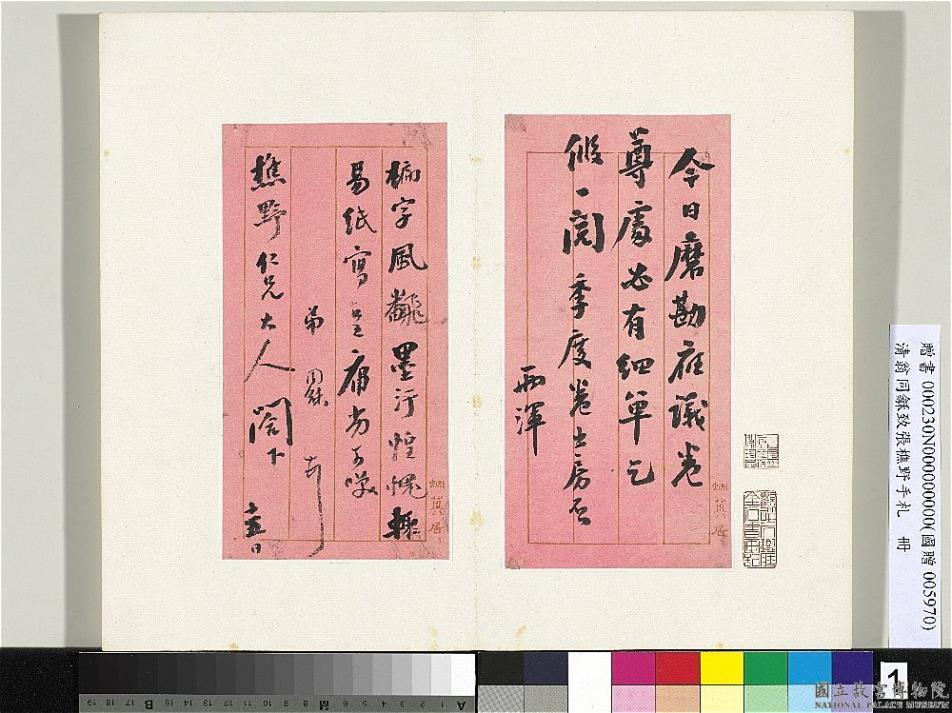 今日磨勘應議卷
尊處必有細單乞
假一閱季度卷出房否
兩渾
楄字風飜墨汙惶愧輒
易紙寫呈庸劣可嘆
弟同龢頓首
樵野仁兄大人閣下
十五日
贈書 000230N000000000(國贈 005970)
清翁同龢致張樵野手札 冊
1
國立故宮博物院
NATIONAL PALACE MUSEUM